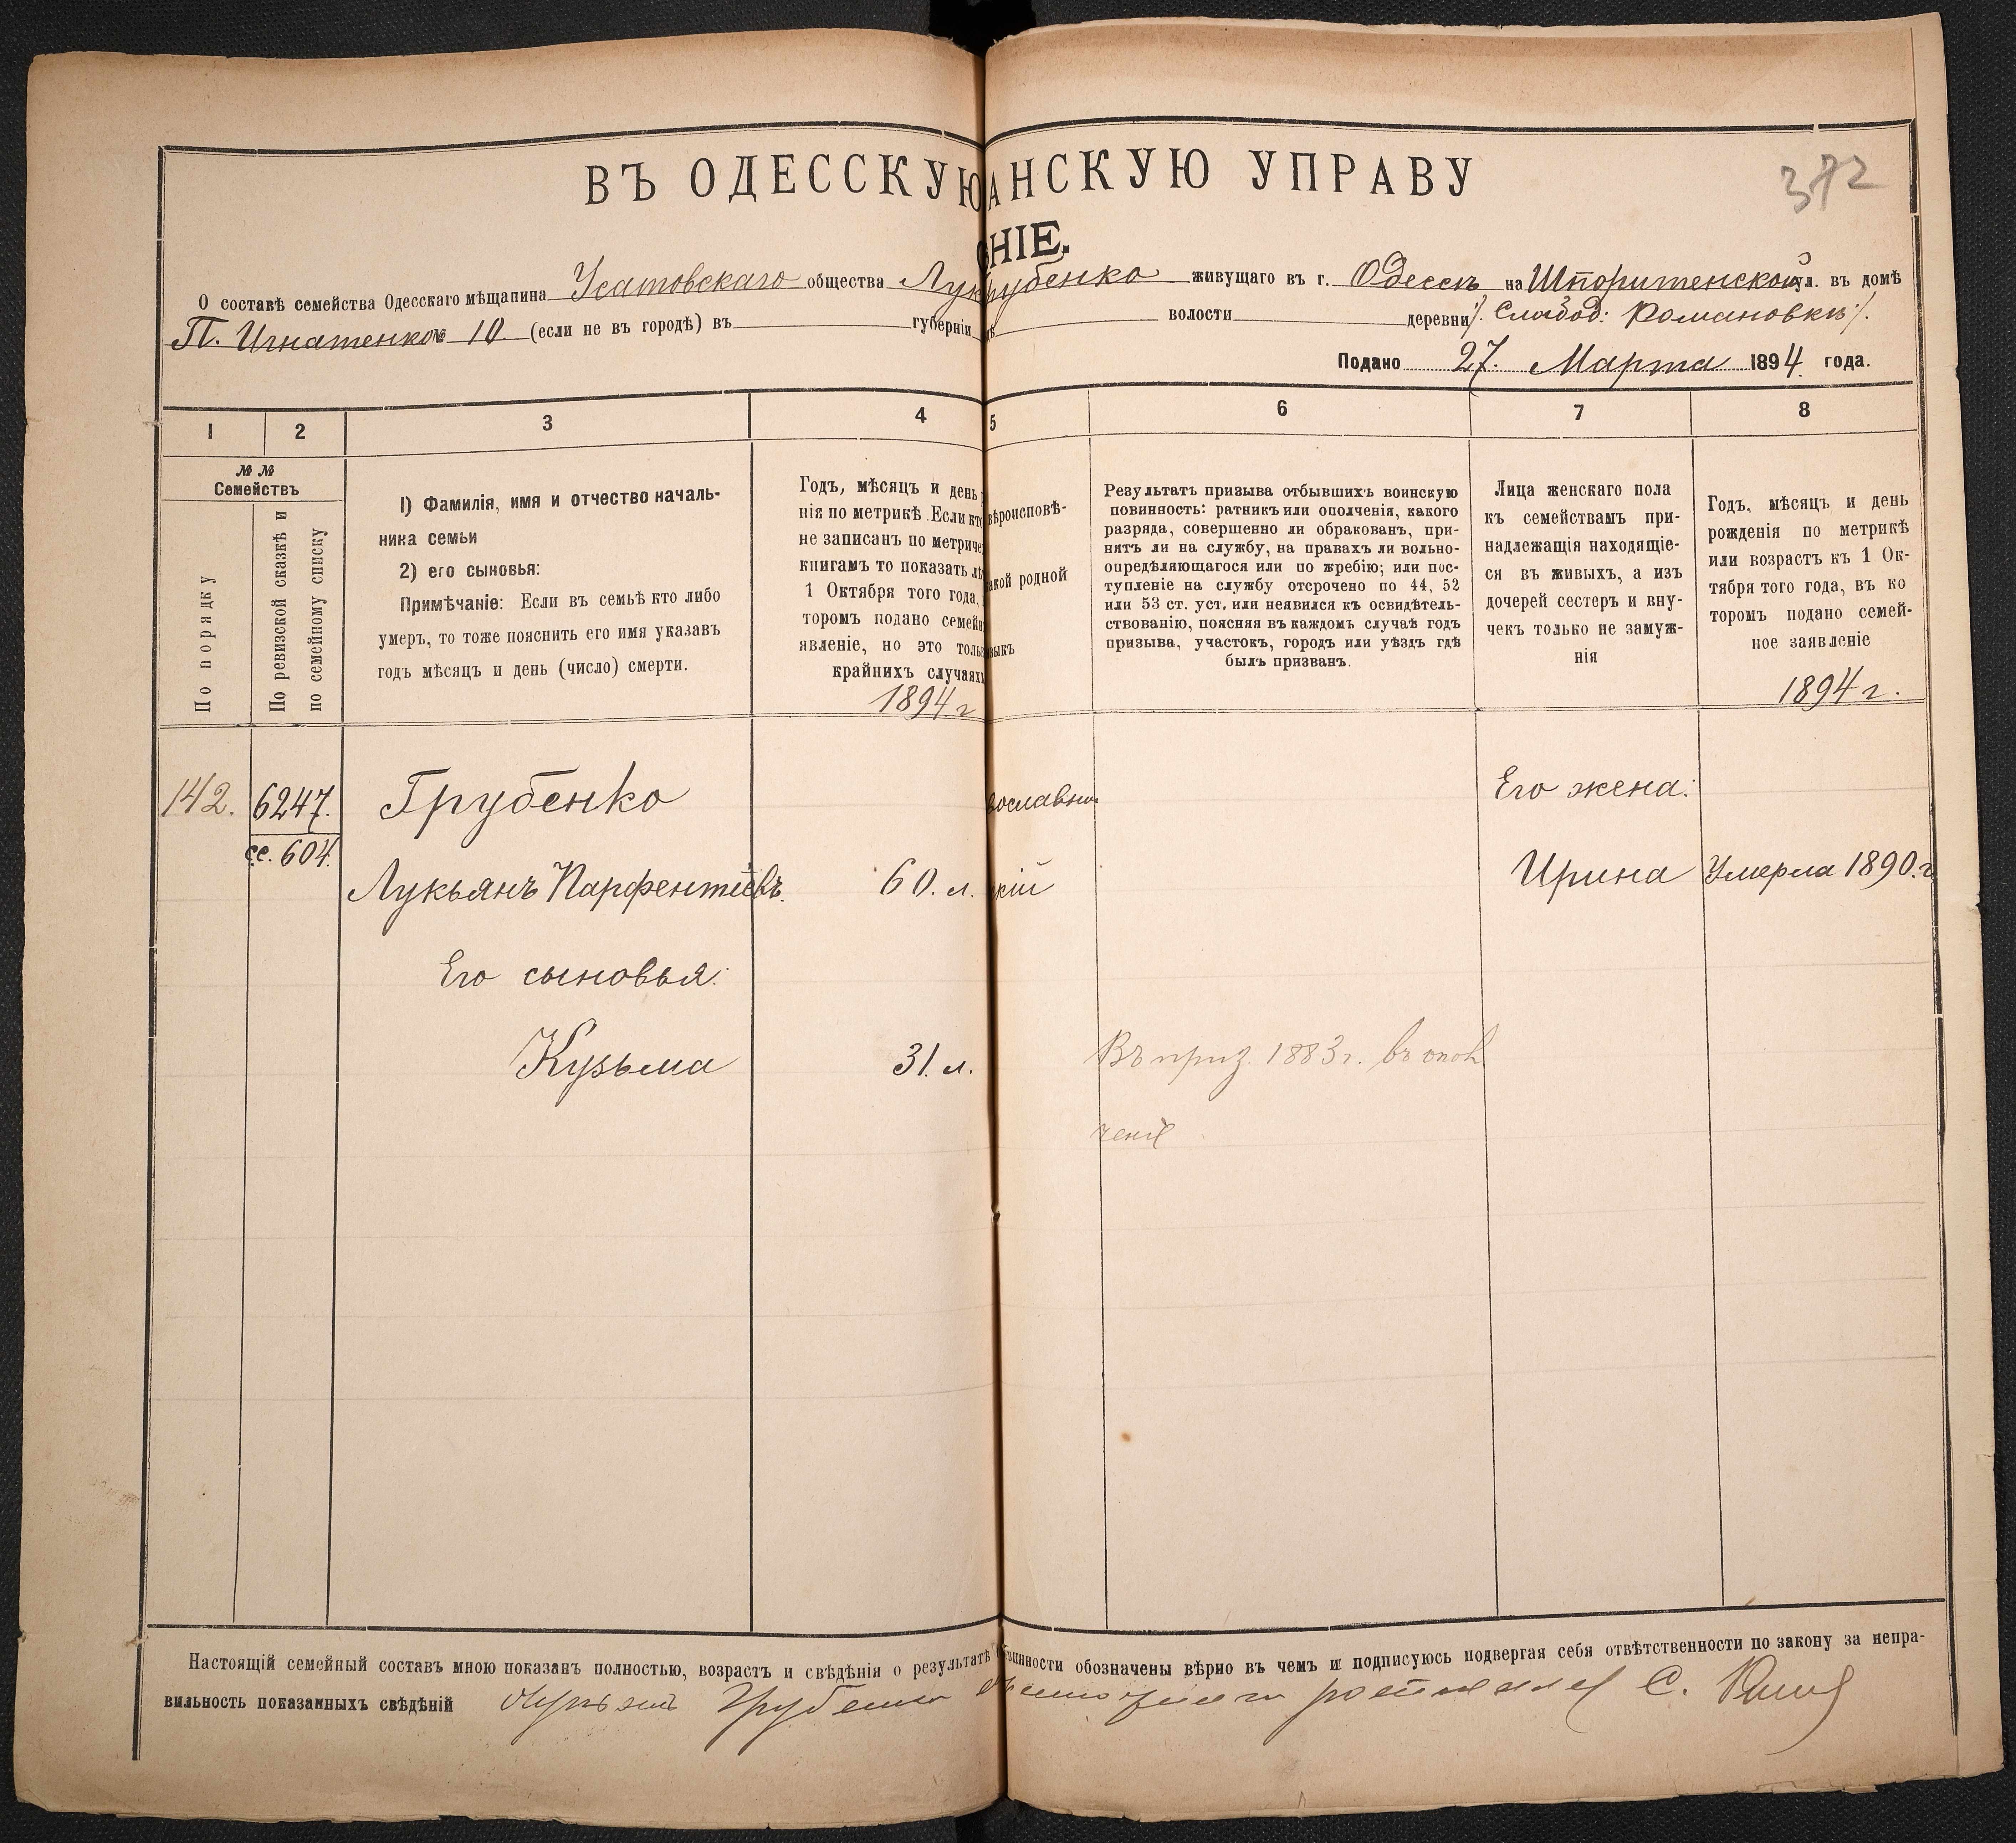 ВЪ ОДЕССКУЮ АНСКУЮ УПРАВУ
372
НІЕ.
О составѣ семейства Одесскаго мѣщанина Усатовскаго общества Лук рубенко живущаго въ г. Одессѣ на ул. въ домѣ
П. Игнатенко № 10. (если не въ городѣ) въ губерніи волости деревни /. Слабод: Романовкѣ /.
Подано 27. Марта 1894. года.
1 2 3 4 5 6 7 8
№ №
Семействъ
По порядку
По ревизской сказкѣ и
по семейному списку
1) Фамилія, имя и отчество началь-
ника семьи
2) его сыновья:
Примѣчаніе: Если въ семьѣ кто либо
умеръ, то тоже пояснить его имя указавъ
годъ мѣсяцъ и день (число) смерти.
Годъ, мѣсяцъ и день
нія по метрикѣ. Если кто
не записанъ по метриче
книгамъ то показать лѣ
1 Октября того года,
торомъ подано семейн
явленіе, но это толь
крайнихъ случаяхъ
1894 г
вѣроисповѣ-
акой родной
зыкъ
Результатъ призыва отбывшихъ воинскую
повинность: ратникъ или ополченія, какого
разряда, совершенно ли обракованъ, при-
нятъ ли на службу, на правахъ ли вольно-
опредѣляющагося или по жребію; или пос-
тупленіе на службу отсрочено по 44, 52
или 53 ст. уст. или неявился къ освидѣтель-
ствованію, поясняя въ каждомъ случаѣ годъ
призыва, участокъ, городъ или уѣздъ гдѣ
былъ призванъ.
Лица женскаго пола
къ семействамъ при-
надлежащія находящіе-
ся въ живыхъ, а изъ
дочерей сестеръ и вну-
чекъ только не замуж-
нія
Годъ, мѣсяцъ и день
рожденія по метрикѣ
или возрастъ къ 1 Ок-
тября того года, въ ко
торомъ подано семей-
ное заявленіе
1894 г.
142. 6247. Грубенко вославно. Его жена:
сс. 604.
Лукьянъ Парфентіевъ. 60. л. кій Ирина Умерла 1890. г
Его сыновья:
Кузьма 31. л. Въ приз. 1883 г. въ опол
ченіе
Настоящій семейный составъ мною показанъ полностью, возрастъ и свѣдѣнія о результатѣ винности обозначены вѣрно въ чемъ и подписуюсь подвергая себя отвѣтственности по закону за непра-
вильность показанныхъ свѣдѣній Грубенко С.